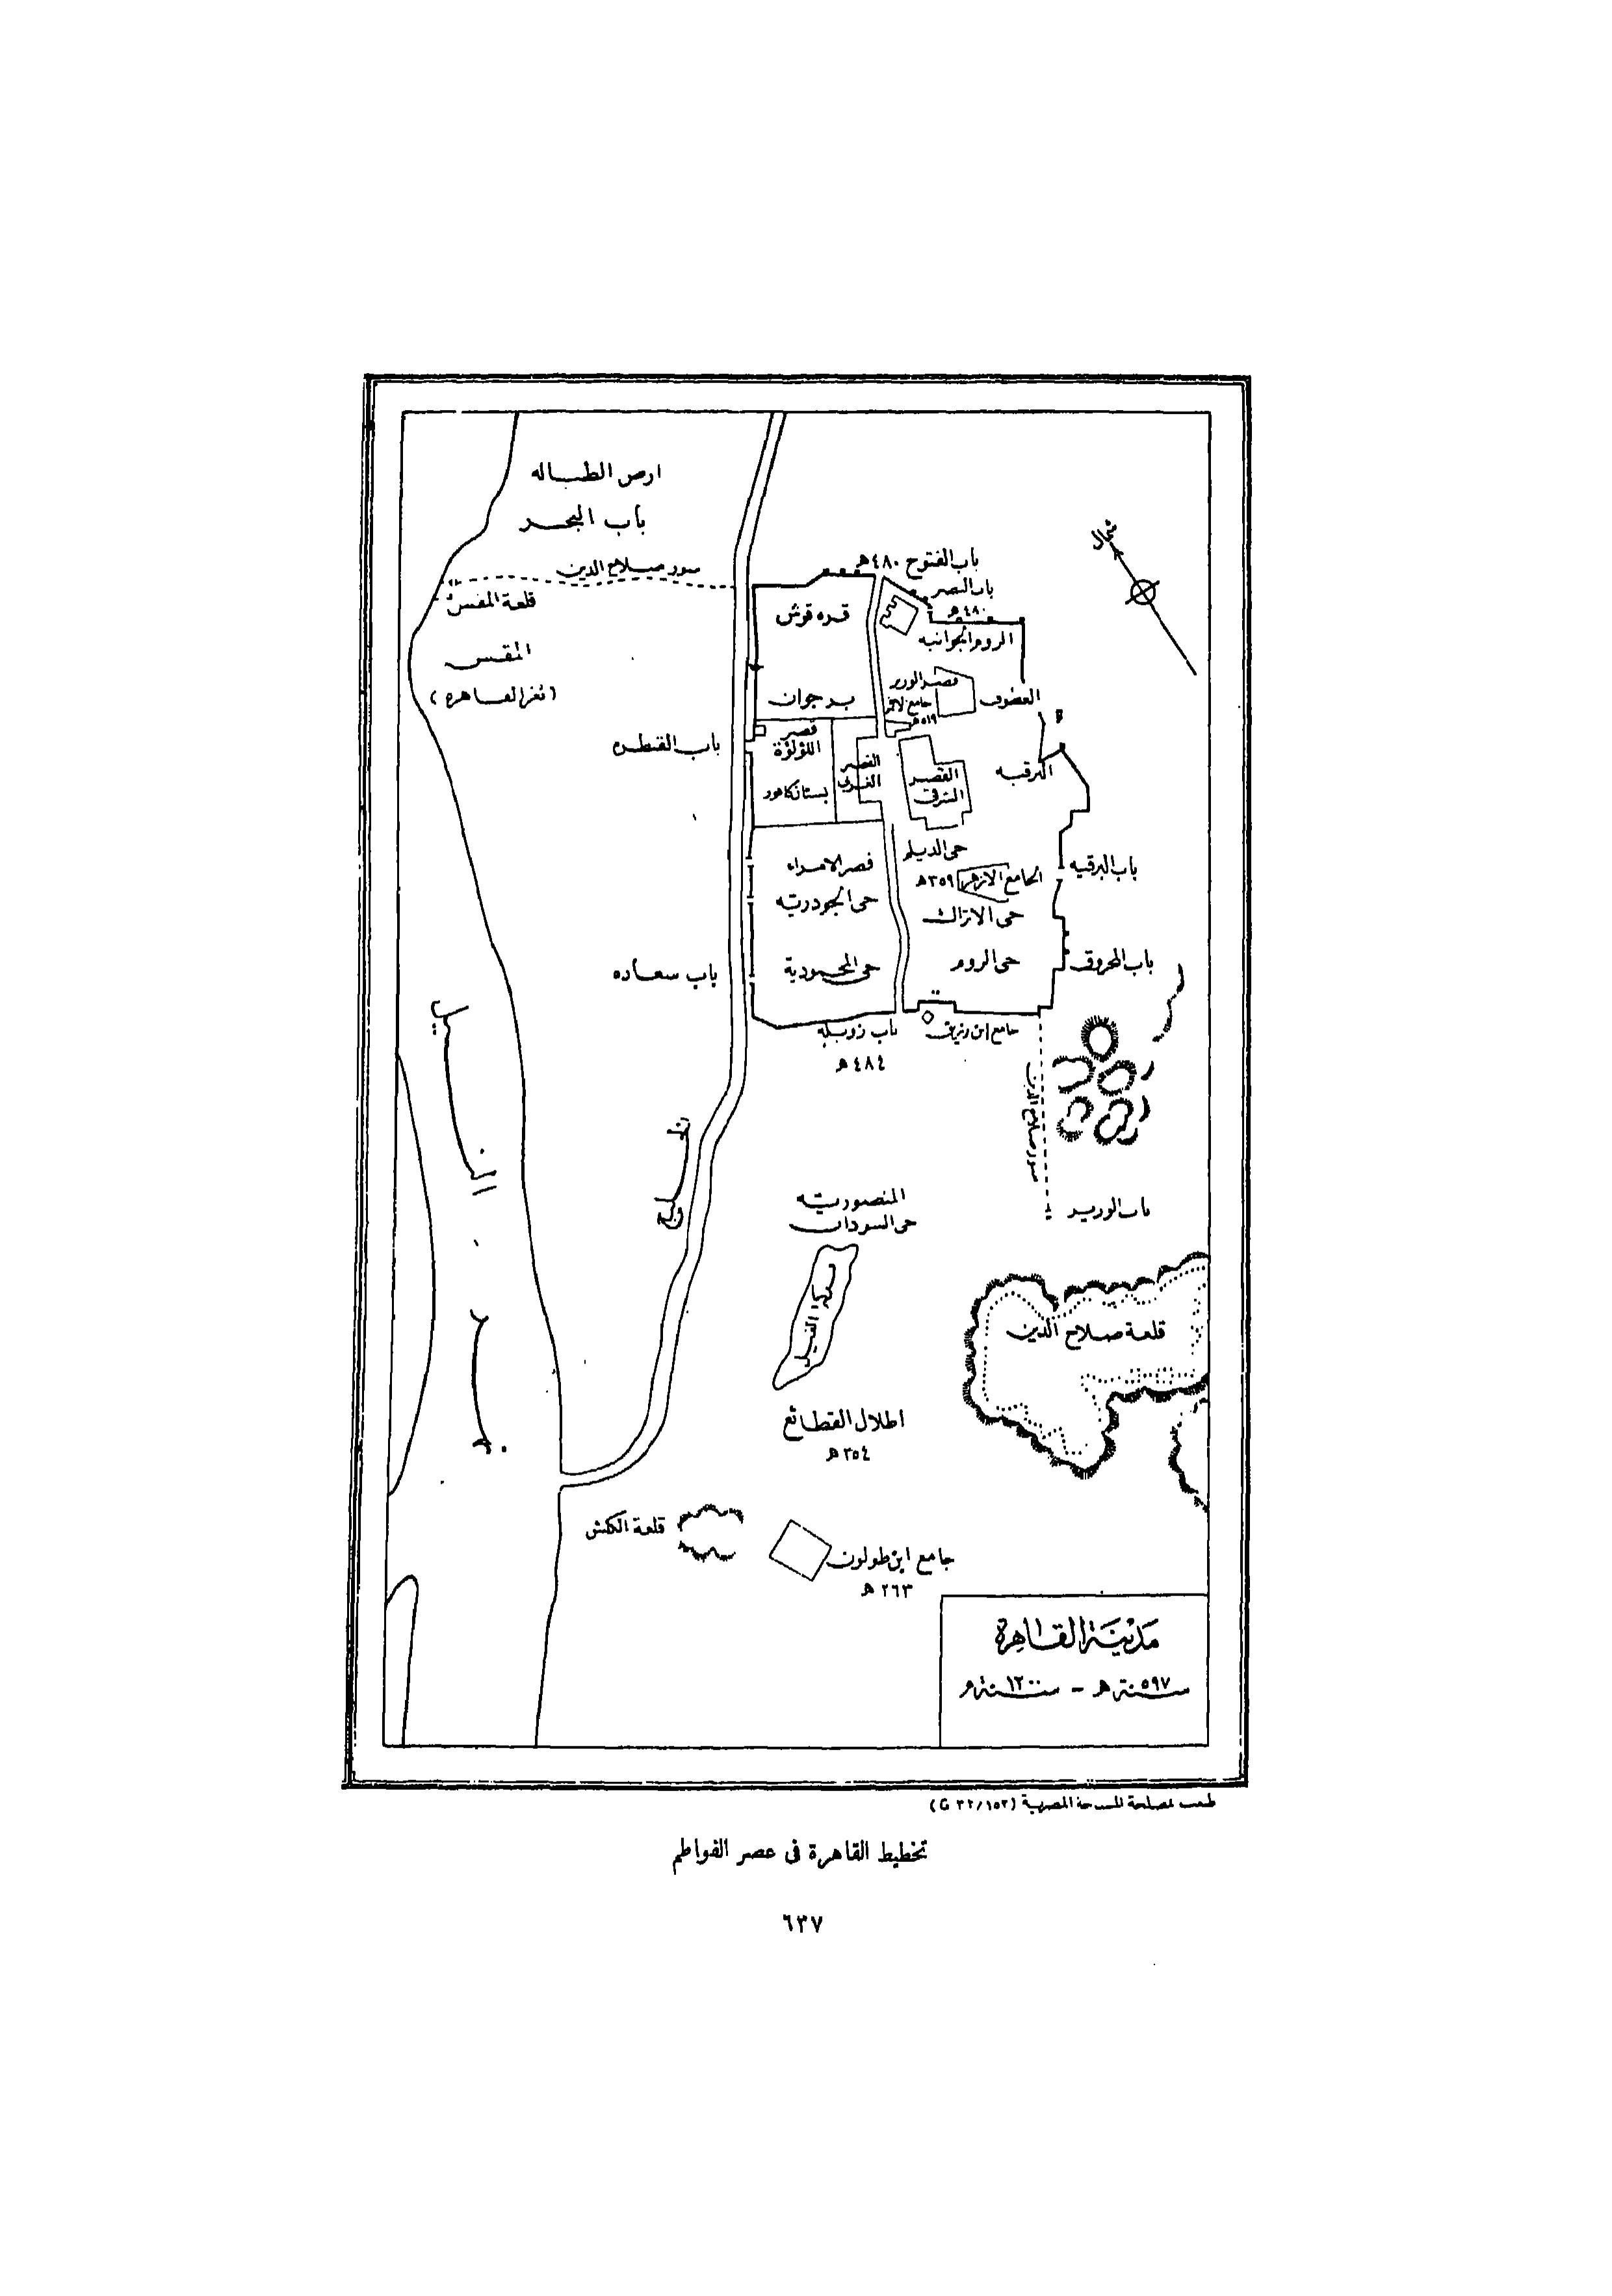 ارض الطباله
باب البحر
سور صلاح الدين
قلعة المقس
المقس
(ثغر القاهره)
شمال
باب الفتوح ٤٨٠هـ
باب النصر
٤٨٠هـ
قره قوش
الروم الجوانيه
برجوان
قصر الوزير
جامع الاقمر
٥١٩هـ
العطوف
باب القنطره
قصر
اللؤلؤة
بستان كافور
القصر
الغربي
القصر
الشرقي
البرقيه
حى الديلم
باب البرقيه
قصر الامراء
الجامع الازهر
٣٥٩هـ
حى الجودريه
حى الاتراك
باب سعاده
حى المحمودية
حى الروم
باب المحروق
باب زويله
٤٨٤هـ
جامع ابن رزيق
سور صلاح الدين
نهر النيل
الخليج
المنصوريه
حى السودان
باب الوزير
بركة الفيل
قلعة صلاح الدين
اطلال القطائع
٣٥٤هـ
قلعة الكبش
جامع ابن طولون
٢٦٣هـ
مدينة القاهرة
سنة ٥٩٧هـ - سنة ١٢٠٠م
طبعت بمصلحة المساحة المصرية (٣٢/١٥٢)
تخطيط القاهرة فى عصر الفواطم
٦٣٧